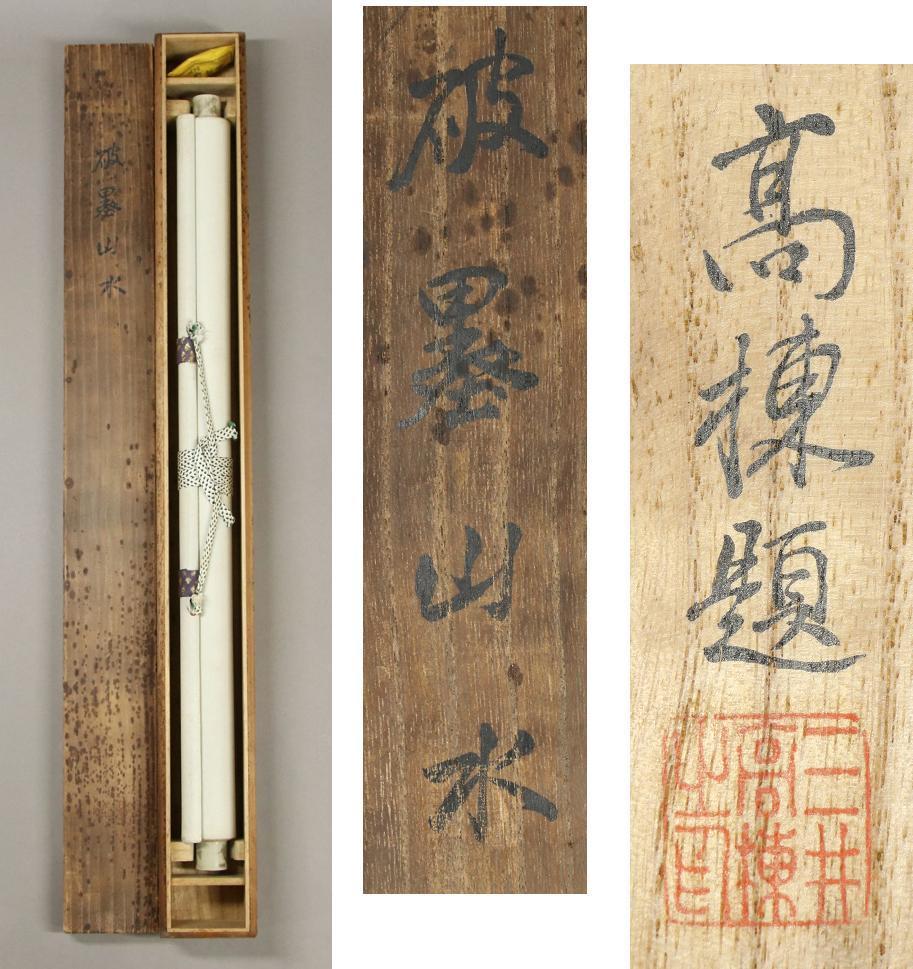 破墨山水
破墨山水
高棟題
三井
高棟
之印